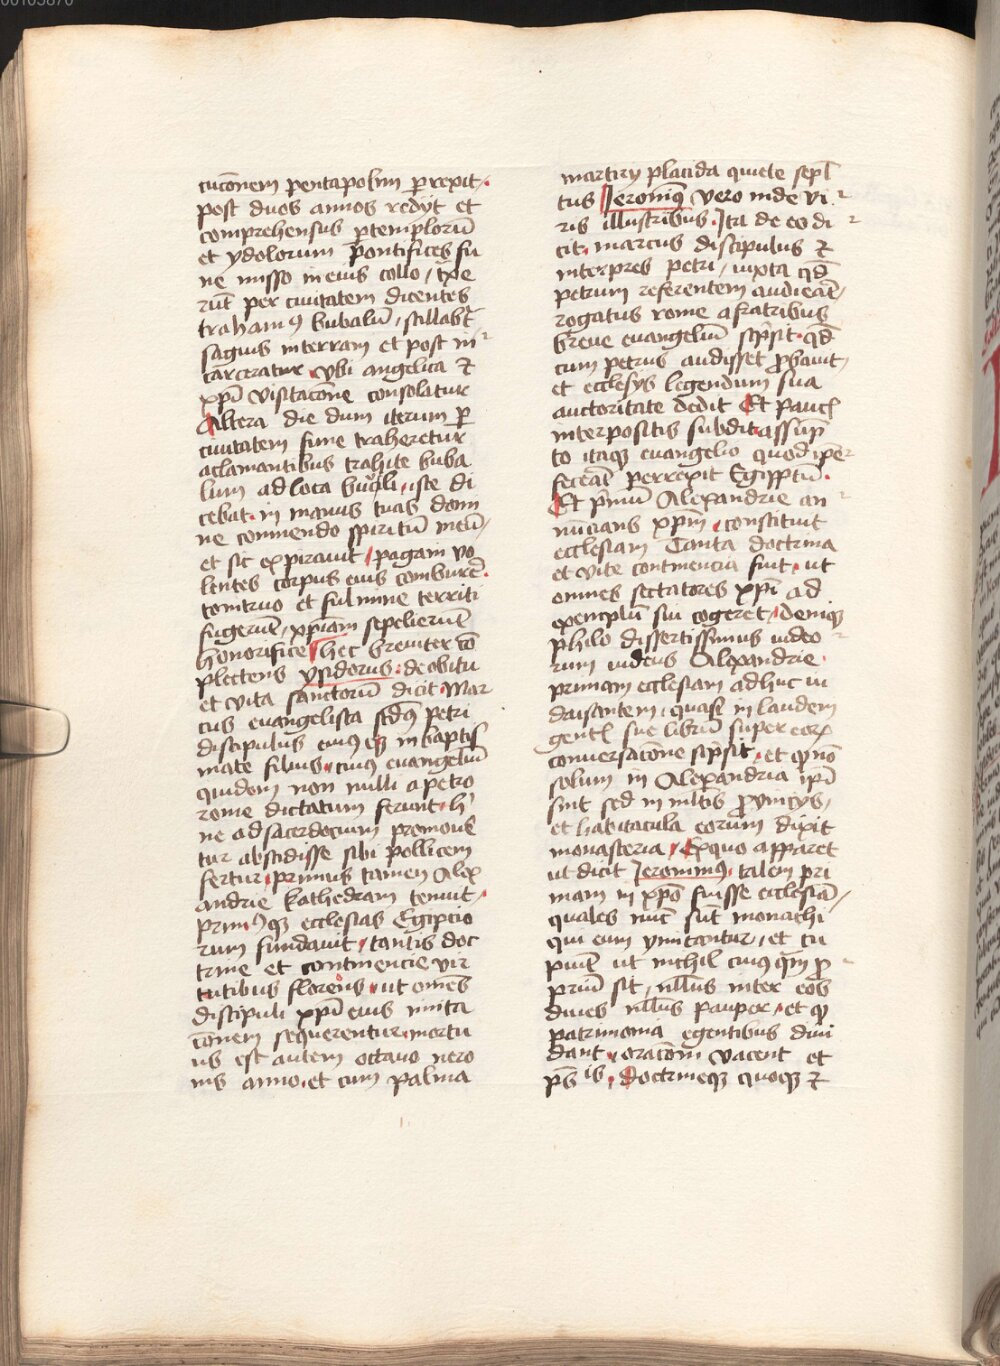 cucōnem pentapolim ꝑrexit.
post duos annos redijt et
comprehensus ꝑtemplorū
et ydolorum pontifices fu
ne misso in eius collo / txe
rūt per ciuitatem dicentes
trahamꝰ bubalū / stillabt̄
sagius in terram et post in
carceratur vbi angelica ⁊
xp̄i visitacōne consolatur
Altera die dum iterum ꝑ
ciuitatem fune traheretur
aclamantibus trahite buba
lum ad loca buculi / iste di
cebat. in manus tuas domi
ne commendo spiritū meū /
et sic expirauit / pagani vo
lentes corpus eius comburē.
tonitruo et fulmine territi
fugerūt / xp̄iani sepelierūt
honorifice hec breuiter cō
plectens ysidorus : de obitu
et vita sanctorū dicit. Mar
cus euangelista scdꝰ petri
discipulus eiusqꝫ in baptis
mate filius. cuiꝰ euangeliū
quidem non nulli a petro
rome dictatum ferunt. h'
ne ad sacerdocium promoue
tur abscidisse sibi pollicem
fertur. primus tamen Alex
andrie kathedram tenuit.
primꝰqꝫ ecclesias Egipcio
rum fundauit / tantis doc
trine et continencie vir
tutibus florens. ut omēs
discipuli xp̄i eius imita
cōnem sequerentur. mortu
us est autem octauo nero
nis anno. et cum palma
martiry placida quiete sepl̄
tus Jeronimꝰ vero in de vi
ris illustribus. Ita de eo di
cit. marcus discipulus ⁊
interpres petri / iuxta qd̄
petrum referentem audierāt /
rogatus rome a fratribus
breue euangeliū scp̄sit. qd̄
cum petrus audisset ꝓbauit /
et ecclesijs legendum sua
auctoritate dedit Et paucꝭ
interpositis subdit assūp
to itaqꝫ euangelio quod ip̄e
fecerāt perrexit Egipptū.
Et pͥmū Alexandrie an
nūcians xpm̄ . constituit
ecclesiam Tanta doctrina
et vite continencia fuit. ut
omnes sectatores xp̄i ad
exemplū sui cogeret. Deniqꝫ
philo dissertissimus iudeo
rum uidens Alexandrie
primam ecclesiam adhuc iu
daisantem. quasi in laudem
gentꝭ sue librū super eorꝫ
conuersacōne scp̄sit. et qꝫ nō
solum in Alexandria ip̄i
sint sed in mltis ꝓuincijs,
et habitacula eorum dixit
monasteria. Ex quo apparet
ut dicit Jeronimꝰ. talem pri
mam in xp̄o fuisse ecclesiā /
quales nūc sūt monachi
qui eum ymitantur. et cu
piūt ut nichil cuiusqm̄ ꝓ
priū sit. nullus inter eos
diues nullus pauper. et qꝫ
patrimonia egentibus diui
dant. oracōni vacent et
ps̄ is. doctrineqꝫ quoqꝫ ⁊